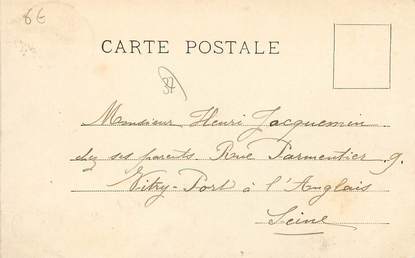 6€
CARTE POSTALE
37
Monsieur Henri Jacquemin
chez ses parents. Rue Parmentier. 9.
Vitry-Port à l'Anglais
Seine